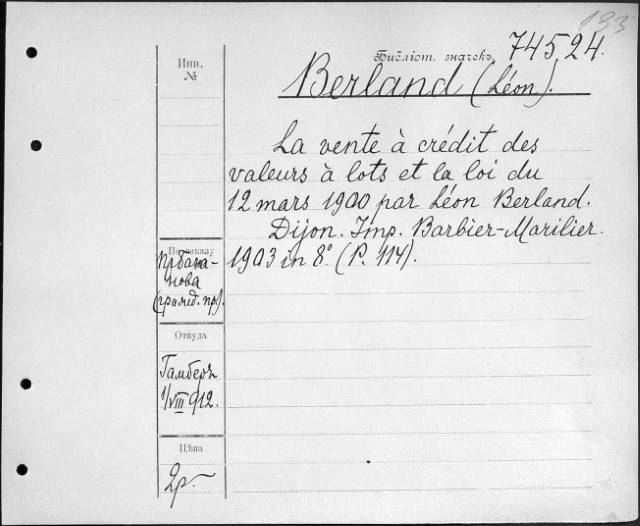 193
Библіот. значекъ 74524.
Инв.
№
Berland (Léon).
La vente à crédit des
valeurs à lots et la loi du
12 mars 1900 par Léon Berland.
Dijon. Imp. Barbier-Marilier.
1903 in 8º (P. 114).
По заказу
нова
(гражд. пр.).
Откуда
Гамберъ
1/VIII 912.
Цѣна
2р.–